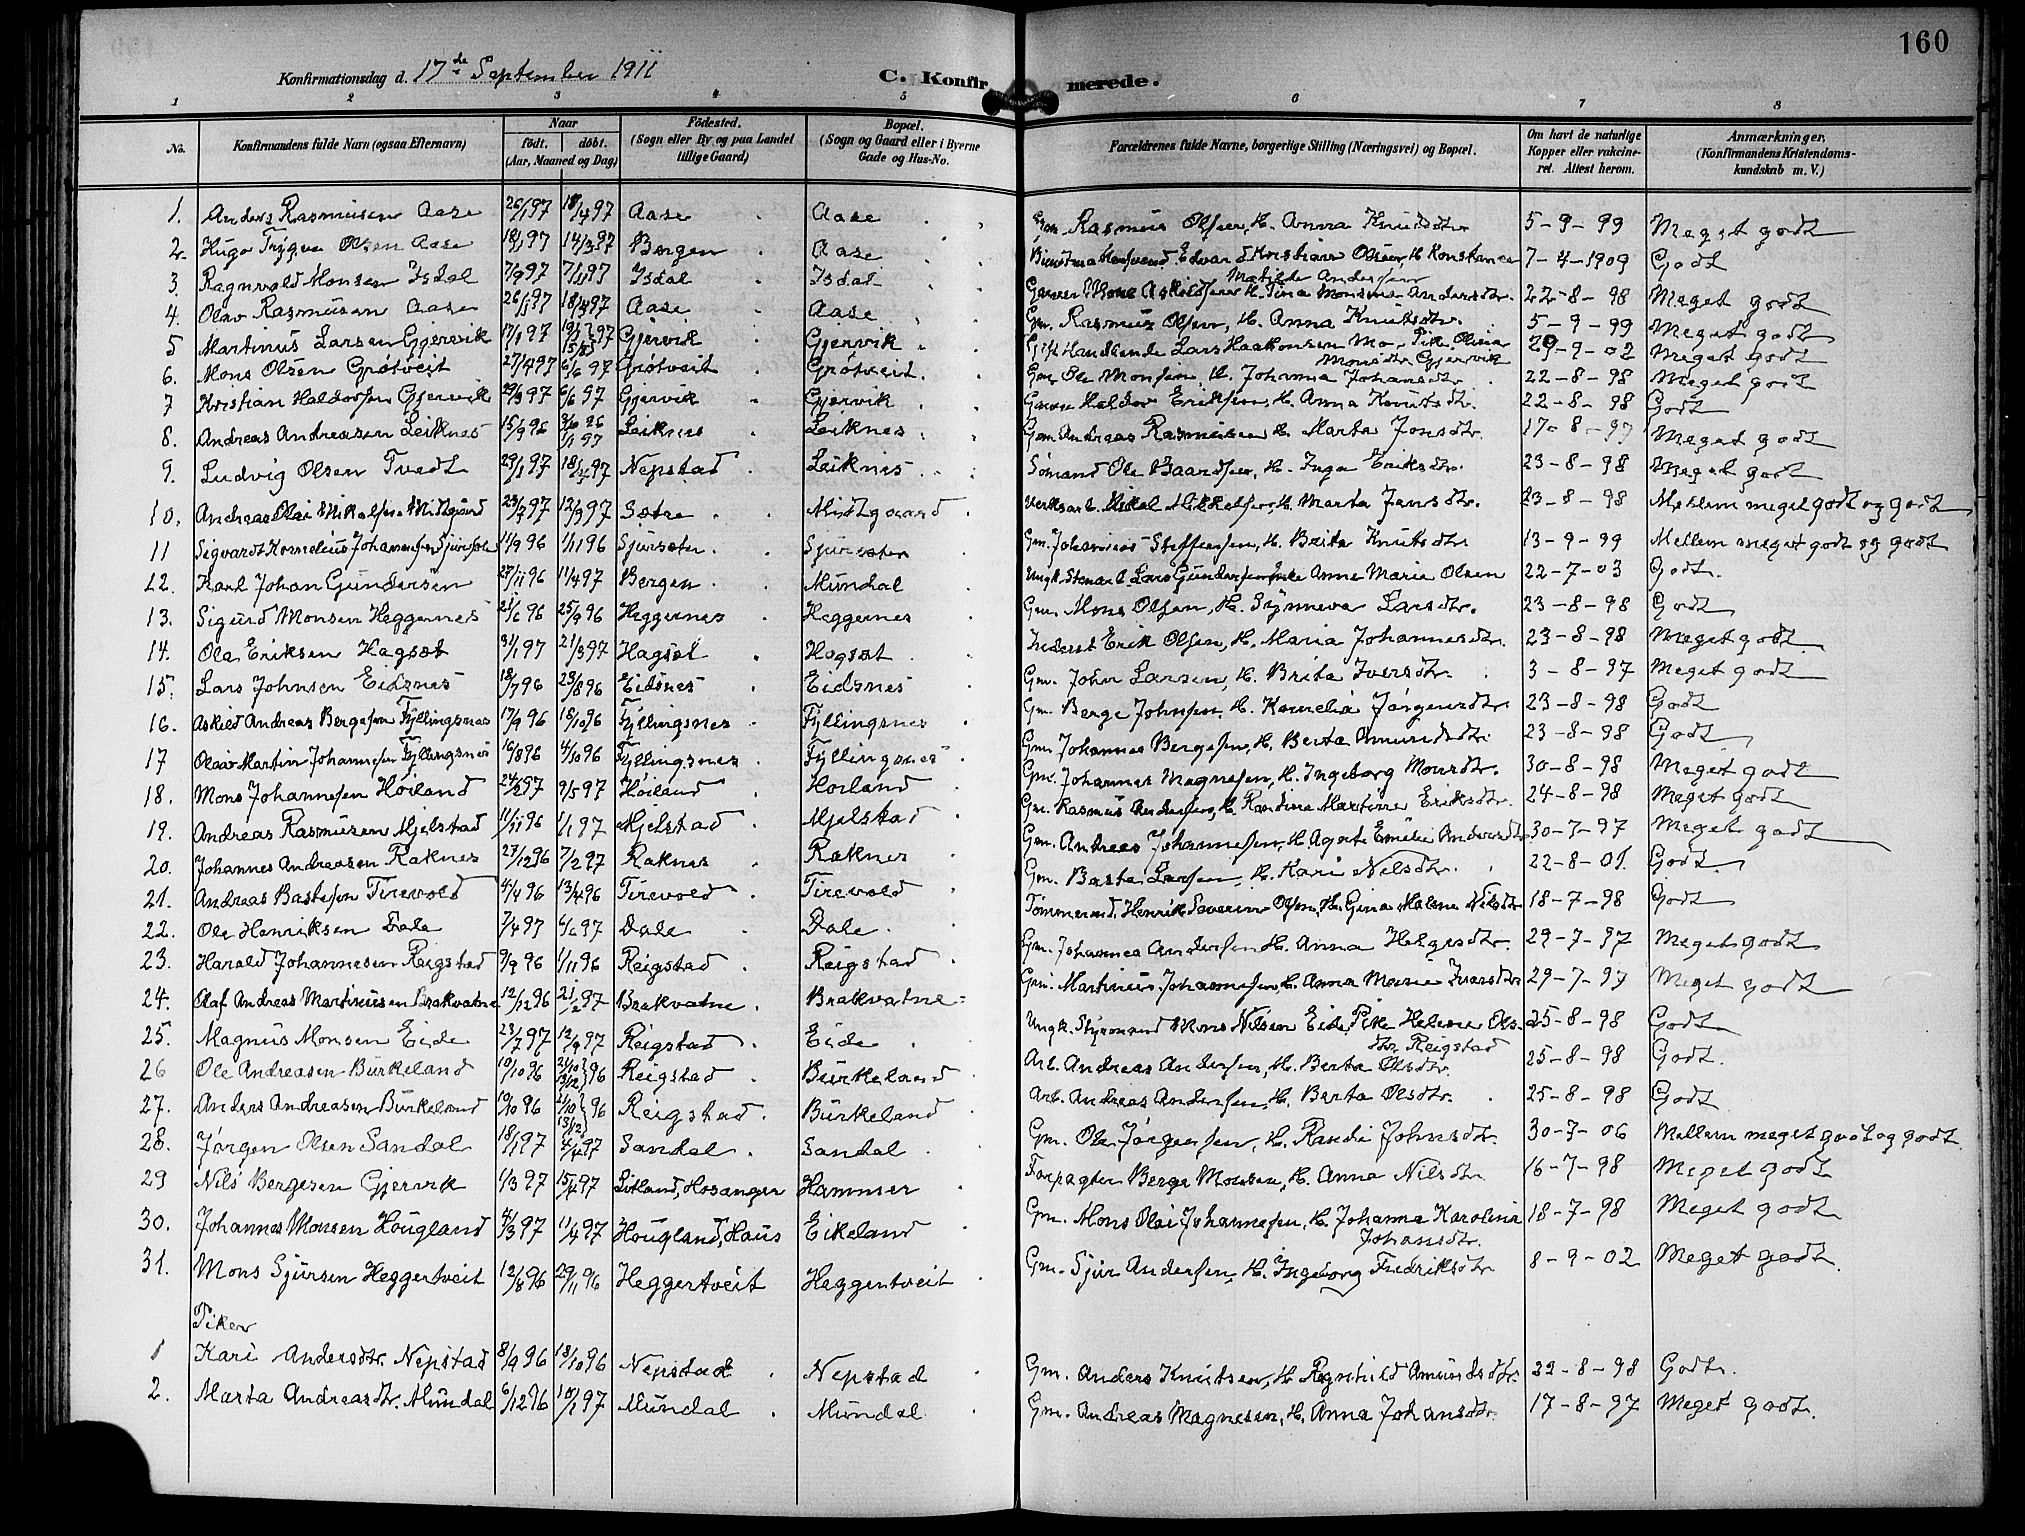 160
Konfirmationsdag d. 17de September 1911 C. Konfirmerede.
1 2 3 4 5 6 7 8
No. Konfirmandens fulde Navn (ogsaa Efternavn) Naar født. døbt. (Aar, Maaned og Dag) Fødested. (Sogn eller By og paa Landet tillige Gaard) Bopæl. (Sogn og Gaard eller i Byerne Gade og Hus-No. Forældrenes fulde Navne, borgerlige Stilling (Næringsvei) og Bopæl. Om havt de naturlige Kopper eller vakcineret. Attest herom. Anmærkninger. (Konfirmandens Kristendomskundskab m. V.)
1. Anders Rasmusen Aase 26/1 97 18/4 97 Aase Aase Gm. Rasmus Olsen, H. Anna Knutsdtr. 5-9-99 Meget godt
2. Hugo Trygve Olsen Aase 97 14/3 97 Bergen Aase Edvard Kristian Olsen, H. Konstance Matilde Andersen 7-4-1909 Godt
3. Ragnvald Monsen Isdal 7/9 97 7/11 97 Isdal Isdal Mons H. Tina Monsine Andersdtr. 22-8-98 Meget godt
4. Olav Rasmusen Aase 26/1 97 18/4 97 Aase Aase Gm. Rasmus Olsen, H. Anna Knutsdtr. 5-9-99 Meget godt
5 Martinus Larsen Gjervik 17/1 97 97 Gjervik Gjervik Gift Handlende Lars Haakonsen Mo, Pike Olivia Monsdtr. Gjervik 29-9-02 Meget godt
6. Mons Olsen Grøtveit 27/4 97 6/6 97 Grøtveit Grøtveit Gm. Ole Monsen, H. Johanna Johansdtr. 22-8-98 Meget godt
7 Kristian Haldorsen Gjervik 29/3 97 6/6 97 Gjervik Gjervik Haldor Eriksen, H. Anna Knutsdtr. 22-8-98 Godt
8. Andreas Andreasen Leiknes 15/9 96 96 1/1 97 Leiknes Leiknes Gm. Andreas Rasmusen H. Marta Jonsdtr. 17-8-97 Meget godt
9. Ludvig Olsen Tvedt 29/1 97 18/4 97 Nepstad Leiknes Sømand Ole Baardsen, H. Inga Eriksdtr. 23-8-98 Meget godt
10. Andreas Olai Mikalsen Midtgård 23/2 97 12/3 97 Sætre Midtgaard Mikal Mikkelsen, H. Marta Jansdtr. 23-8-98 Mellem meget godt og godt
11 Sigvardt Kornelius Johannesen Sjursæter 11/9 96 1/11 96 Sjursæter Sjursæter Gm. Johannes Steffensen, H. Brita Knutsdtr. 13-9-99 Mellem meget godt og godt
12. Karl Johan Gundersen 27/11 96 11/4 97 Bergen Mundal Ungk. Lars Gundersen, Anne Marie Olsen 22-7-03 Godt.
13. Sigurd Monsen Heggernes 21/6 96 25/9 96 Heggernes Heggernes Gm. Mons Olsen, H. Synneva Larsdtr. 23-8-98 Godt
14. Ola Eriksen Hagset 31/1 97 21/3 97 Hagset Hagset Inderst Erik Olsen, H. Maria Johannesdtr. 23-8-98 Meget godt.
15. Lars Johnsen Eidsnes 18/7 96 23/8 96 Eidsnes Eidsnes Gm. John Larsen, H. Brita Iversdtr. 3-8-97 Meget godt
16. Askild Andreas Bergesen Fyllingsnes 17/9 96 18/10 96 Fyllingsnes Fyllingsnes Gm. Berge Johnsen, H. Kornelia Jørgensdtr. 23-8-98 Godt
17 Olav Martin Johannesen Fyllingsnes 16/8 96 4/10 96 Fyllingsnes Fyllingsnes Gm. Johannes Bergesen, H. Berta Amundsdtr. 23-8-98 Godt
18. Mons Johannesen Høiland 24/2 97 9/5 97 Høiland Høiland Gm. Johannes Magnesen, H. Ingeborg Monsdtr. 30-8-98 Meget godt
19. Andreas Rasmusen Mjelstad 11/11 96 1/1 97 Mjelstad Mjelstad Gm. Rasmus Andersen, H. Randine Martine Eriksdtr. 24-8-98 Meget godt
20. Johannes Andreasen Raknes 27/12 96 7/2 97 Raknes Raknes Gm. Andreas Johannesen, H. Agate Emelie Andersdtr. 30-7-97 Meget godt
21. Andreas Bastesen Tirevold 4/4 96 13/4 96 Tirevold Tirevold Gm. Baste Larsen, H. Kari Nilsdtr. 22-8-01. Godt.
22. Ole Henriksen Dale 7/4 97 6/6 97 Dale Dale Tømmermd. Henrik Severin Olsen, H. Gina Malene Nilsdtr 18-7-98 Godt
23. Harald Johannesen Reigstad 9/9 96 1/11 96 Reigstad Reigstad Gm. Johannes Andersen H. Anna Helgesdtr. 29-7-97 Meget godt
24. Olaf Andreas Martinusen Brakvatne 12/12 96 21/2 97 Brakvatne Brakvatne Gm. Martinus Johannesen, H. Anna Marie Ivarsdtr 29-7-97 Meget godt
25. Magnus Monsen Eide 23/7 97 12/9 97 Reigstad Eide Ungk. Styrmand Mons Nilsen Eide, Pike Helene Olsdtr. Reigstad 25-8-98 Godt
26 Ole Andreasen Burkeland 10/10 96 21/10 13/12 96 Reigstad Burkeland Arb. Andreas Andersen, H. Berta Olsdtr. 25-8-98 Godt.
27. Anders Andreasen Burkeland 10/10 96 21/10 13/12 96 Reigstad Burkeland Arb. Andreas Andersen, H. Berta Olsdtr. 25-8-98 Godt
28. Jørgen Olsen Sandal 18/1 97 4/4 97 Sandal Sandal Gm. Ole Jørgensen, H. Randi Johnsdtr. 30-7-06 Mellem meget godt og godt
29 Nils Bergesen Gjervik 1/3 97 15/4 97 Litland, Hosanger Hammer Forpagter Berge Monsen, H. Anna Nilsdtr 16-7-98 Meget godt
30. Johannes Monsen Hougland 4/3 97 11/4 97 Hougland, Haus Eikeland Gm. Mons Olai Johannesen, H. Johanna Karolina Johansdtr. 18-7-98 Meget godt
31. Mons Sjursen Heggertveit 12/8 96 29/11 96 Heggertveit Heggertveit Gm. Sjur Andersen, H. Ingeborg Fredriksdtr 8-9-02 Meget godt.
Piker
1 Kari Andersdtr. Nepstad 8/9 96 18/10 96 Nepstad Nepstad Gm. Anders Knutsen, H. Ragnhild Amundsdtr. 22-8-98 Godt.
2. Marta Andreasdtr. Mundal 6/12 96 10/1 97 Mundal Mundal Gm. Andreas Magnesen, H. Anna Johansdtr. 17-8-97 Meget godt.